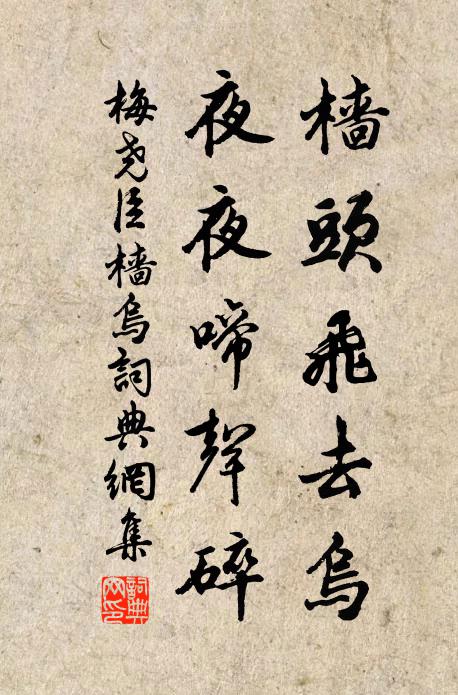 檣頭飛去烏
夜夜啼聲碎
梅堯臣檣烏詞典網集
詞典網印